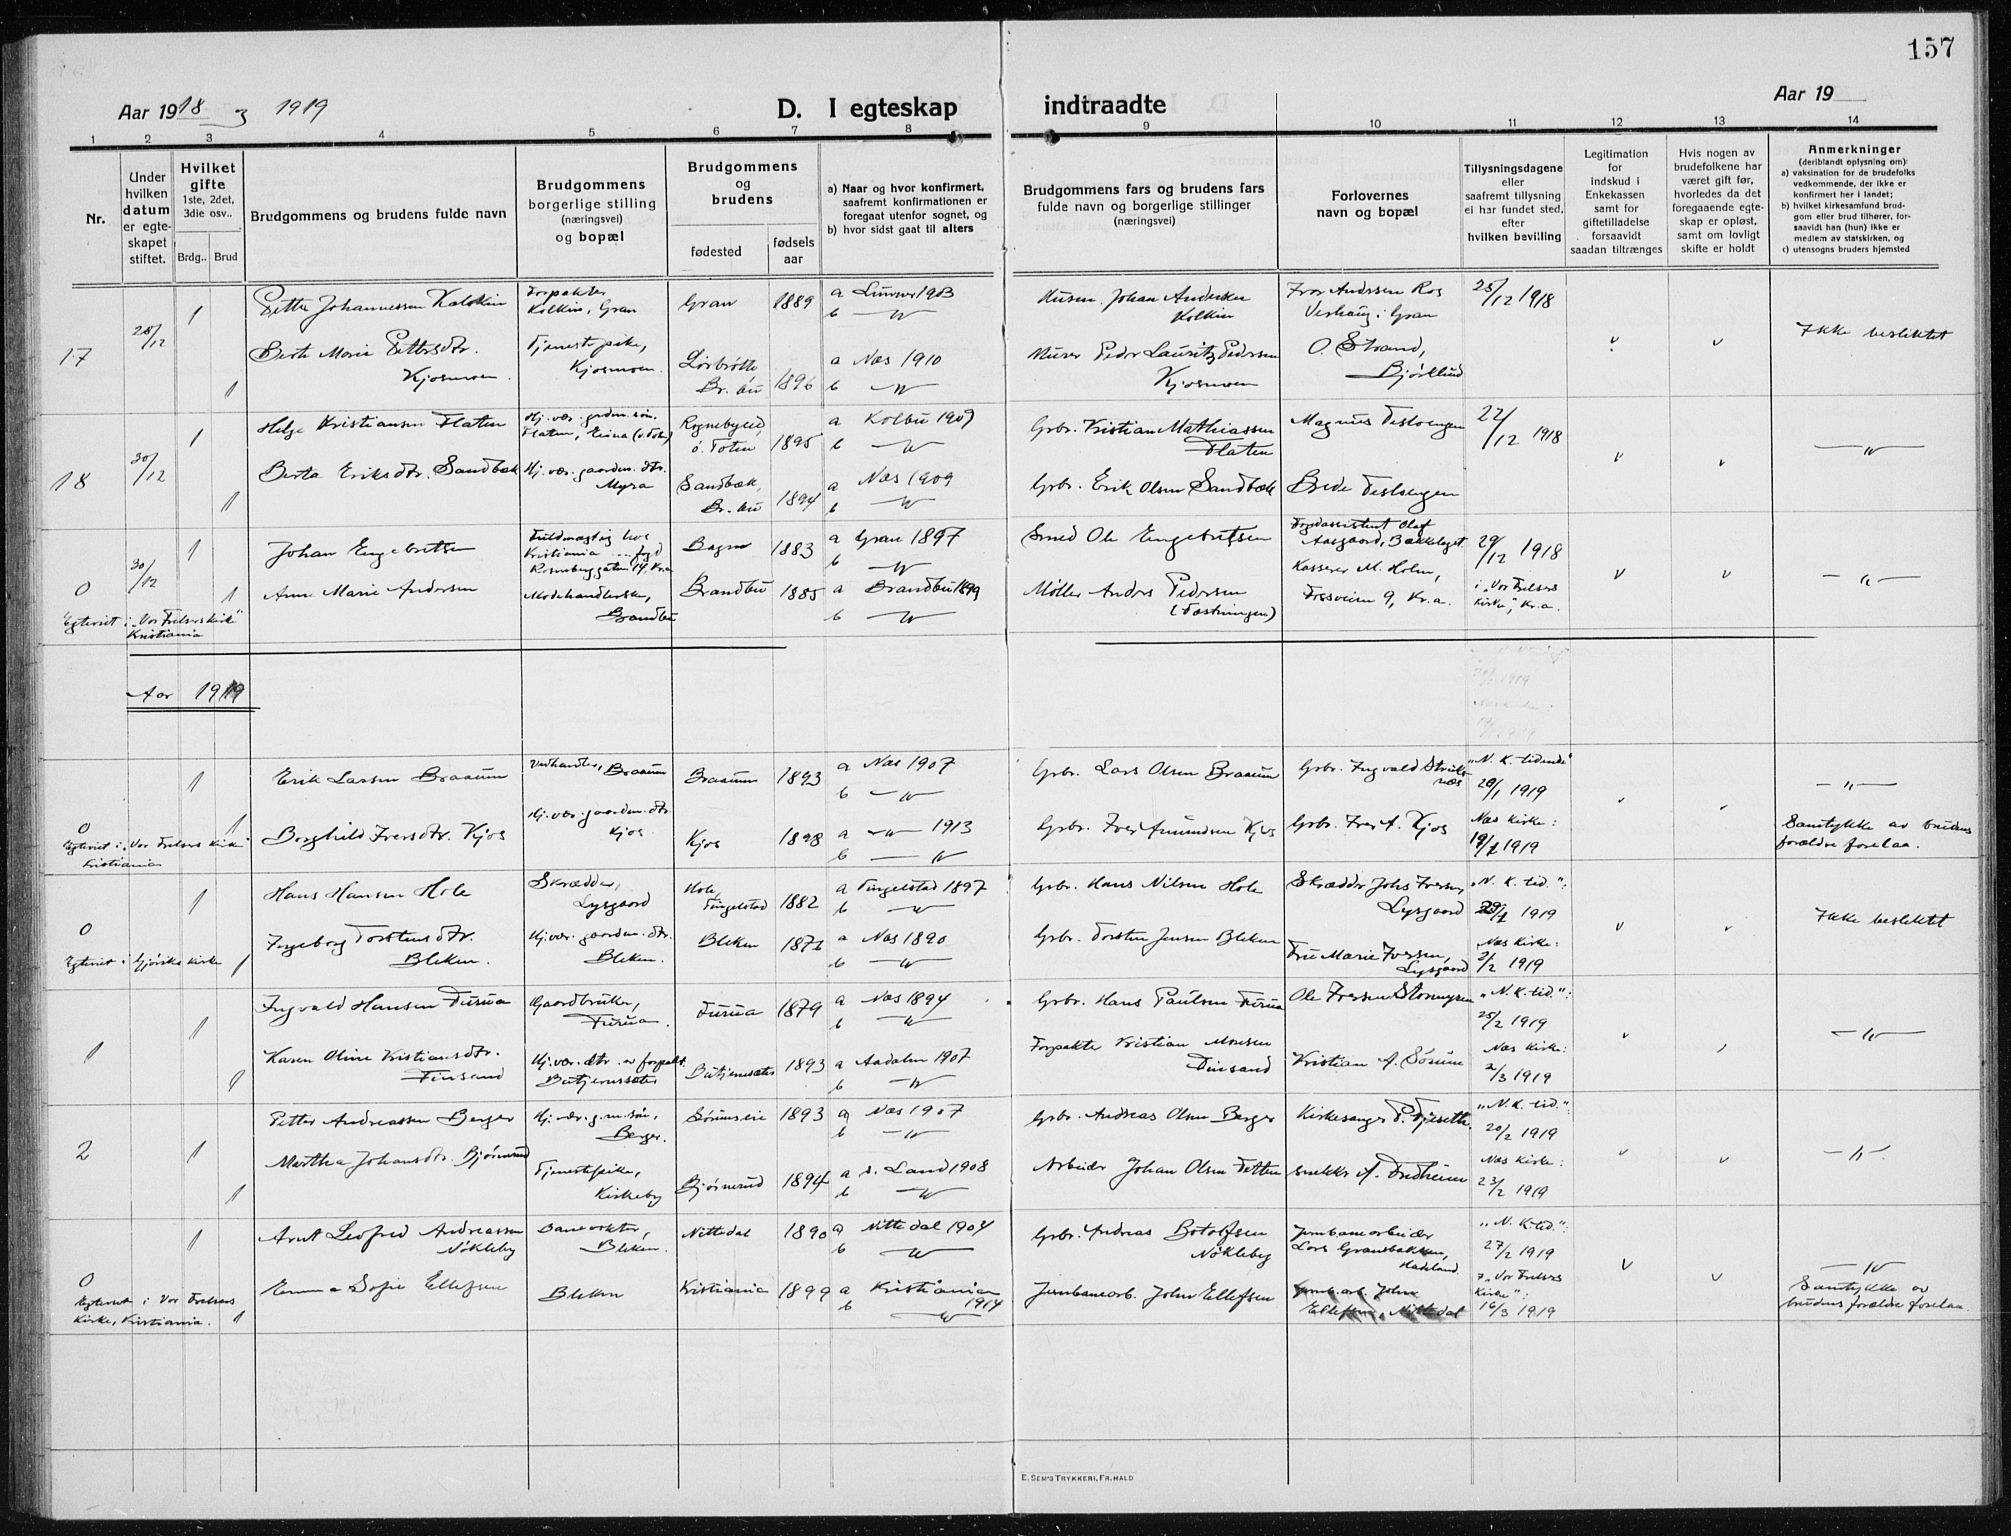 157
Aar 1918 og 1919
D. I egteskap indtraadte
Aar 19
1 2 3 4 5 6 7 8 9 10 11 12 13 14
Nr.
Under hvilken datum er egteskapet stiftet.
Hvilket gifte 1ste, 2det, 3die osv..
Brdg.. Brud
Brudgommens og brudens fulde navn
Brudgommens borgerlige stilling (næringsvei) og bopæl
Brudgommens og brudens
fødested
fødsels aar
a) Naar og hvor konfirmert, saafremt konfirmationen er foregaat utenfor sognet, og
b) hvor sidst gaat til alters
Brudgommens fars og brudens fars fulde navn og borgerlige stillinger (næringsvei)
Forlovernes navn og bopæl
Tillysningsdagene eller saafremt tillysning ei har fundet sted, efter hvilken bevilling
Legitimation for indskud i Enkekassen samt for giftetilladelse forsaavidt saadan tiltrænges
Hvis nogen av brudefolkene har været gift før, hvorledes da det foregaaende egteskap er opløst, samt om lovligt skifte er holdt
Anmerkninger
(deriblandt oplysning om):
a) vaksination for de brudefolks vedkommende, der ikke er konfirmert her i landet;
b) hvilket kirkesamfund brudgom eller brud tilhører, forsaavidt han (hun) ikke er medlem av statskirken, og
c) utensogns bruders hjemsted
17
28/12
1
Petter Johannessen
Kolkin, Gran
Gran 1889
a Lunner 1903
b —"—
Johan
Kolkin
Gran
28/12 1918
Ikke beslektet
1
Berte Marie Pettersdtr.
Kjosmoen
Tjenestepike,
Kjosmoen
Br.bu 1896
a Næs 1910
b —"—
Murer Peder Lauritz Pedersen
Kjosmoen
O. Strand,
Bjørklund
18
30/12
1
Helge Kristiansen Flaten
Hj. vær. gaardm. søn,
Ø. Toten 1895
a Kolbu 1909
b —"—
Grbr. Kristian Mathiassen
Flaten
Magnus
22/12 1918
—"—
1
Berta Eriksdtr. Sandbæk
Hj. vær. gaardm. dtr.
Myra
Sandbæk,
Br.bu 1894
a Næs 1909
b —"—
Grbr. Erik Olsen Sandbæk
0
30/12
1
Johan Engebretsen
Fuldmægtig hos
Kristiania
Bagn 1883
a Gran 1897
b —"—
Smed Ole Engebretsen
Aasgaard, Bækkelaget
29/12 1918
—"—
1
Anne Marie Andersen
Modehandlerske,
Brandbu
Brandbu 1885
a Brandbu 1899
b —"—
Møller Anders Pedersen
(Fæstningen)
Kasserer M. Holm,
9, Kr.a.
i "Vor Frelsers
kirke", Kr.a.
Egteviet i "Vor Frelsers kirke"
Kristiania
Aar 1919
1
Erik Larsen Braaum
Vedhandler, Braaum
Braaum 1893
a Næs 1907
b —"—
Grbr. Lars Olsen Braaum
Grbr. Ingvald
"N. K. tidende"
20/1 1919
—"—
0
1
Borghild Iversdtr. Kjos
Hj. vær. gaardm. dtr.
Kjos
Kjos 1898
a —"— 1913
b —"—
Grbr. Iver Amundsen Kjos
Grbr. Iver A. Kjos
Næs kirke:
1919
Samtykke av brudens
forældre forelaa.
Egteviet i "Vor Frelsers kirke"
Kristiania
1
Hans Hansen Hole
Skrædder,
Lysgaard
Hole,
Tingelstad 1882
a Tingelstad 1897
b —"—
Grbr. Hans Nilsen Hole
Skrædder Johs Iversen,
Lysgaard
"N. K. tid.":
1919
Ikke beslektet
0
1
Ingeborg Torstensdtr.
Bleken
Hj. vær. gaardm. dtr.
Bleken.
Bleken 1876
a Næs 1890
b —"—
Grbr. Torsten Jensen Bleken
Fru Marie Iversen,
Lysgaard
Næs kirke:
2/2 1919
Egteviet i Gjøviks kirke
1
1
Ingvald Hansen Furua
Gaardbruker,
Furua
Furua 1879
a Næs 1894
b —"—
Grbr. Hans Paulsen Furua
Ole Iversen
"N. K. tid.":
25/2 1919
—"—
1
Karen Oline Kristiansdtr.
Finsand
Hj. vær. dtr. av forpakt.
1893
a Aadalen 1907
b —"—
Forpakter Kristian Monsen
Finsand
Kristian A. Sørum
Næs kirke:
2/3 1919
2
1
Petter Andreassen Berger
Hj. vær. g.m. søn,
Berger.
Sørumseie 1893
a Næs 1907
b —"—
Grbr. Andreas Olsen Berger
Kirkesanger P.
"N. K. tid.":
20/2 1919
—"—
1
Martha Johansdtr. Bjørnerud
Tjenestepike,
Kirkeby
Bjørnerud 1894
a s. Land 1908
b —"—
Arbeider Johan Olsen
Snekker A.
Næs kirke:
23/2 1919
1
Arnt Leofred Andreassen
Nøkleby
Banevokter,
Bleken.
Nittedal 1890
a Nittedal 1904
b —"—
Grbr. Andreas Botolfsen
Nøkleby
Jernbanearbeider
Lars Gransbakken,
Hadeland
"N. K. tid.":
27/2 1919
—"—
0
1
Emma Sofie Ellefsen
Bleken
Kristiania 1899
a Kristiania
1914
b —"—
Jernbanearb. John Ellefsen
Jernb.arb. John
Ellefsen, Nittedal
"Vor Frelsers
Kirke":
16/3 1919
Samtykke av
brudens forældre forelaa
Egteviet i Vor Frelsers
Kirke, Kristiania.
E. SEM'S TRYKKERI, FR.HALD